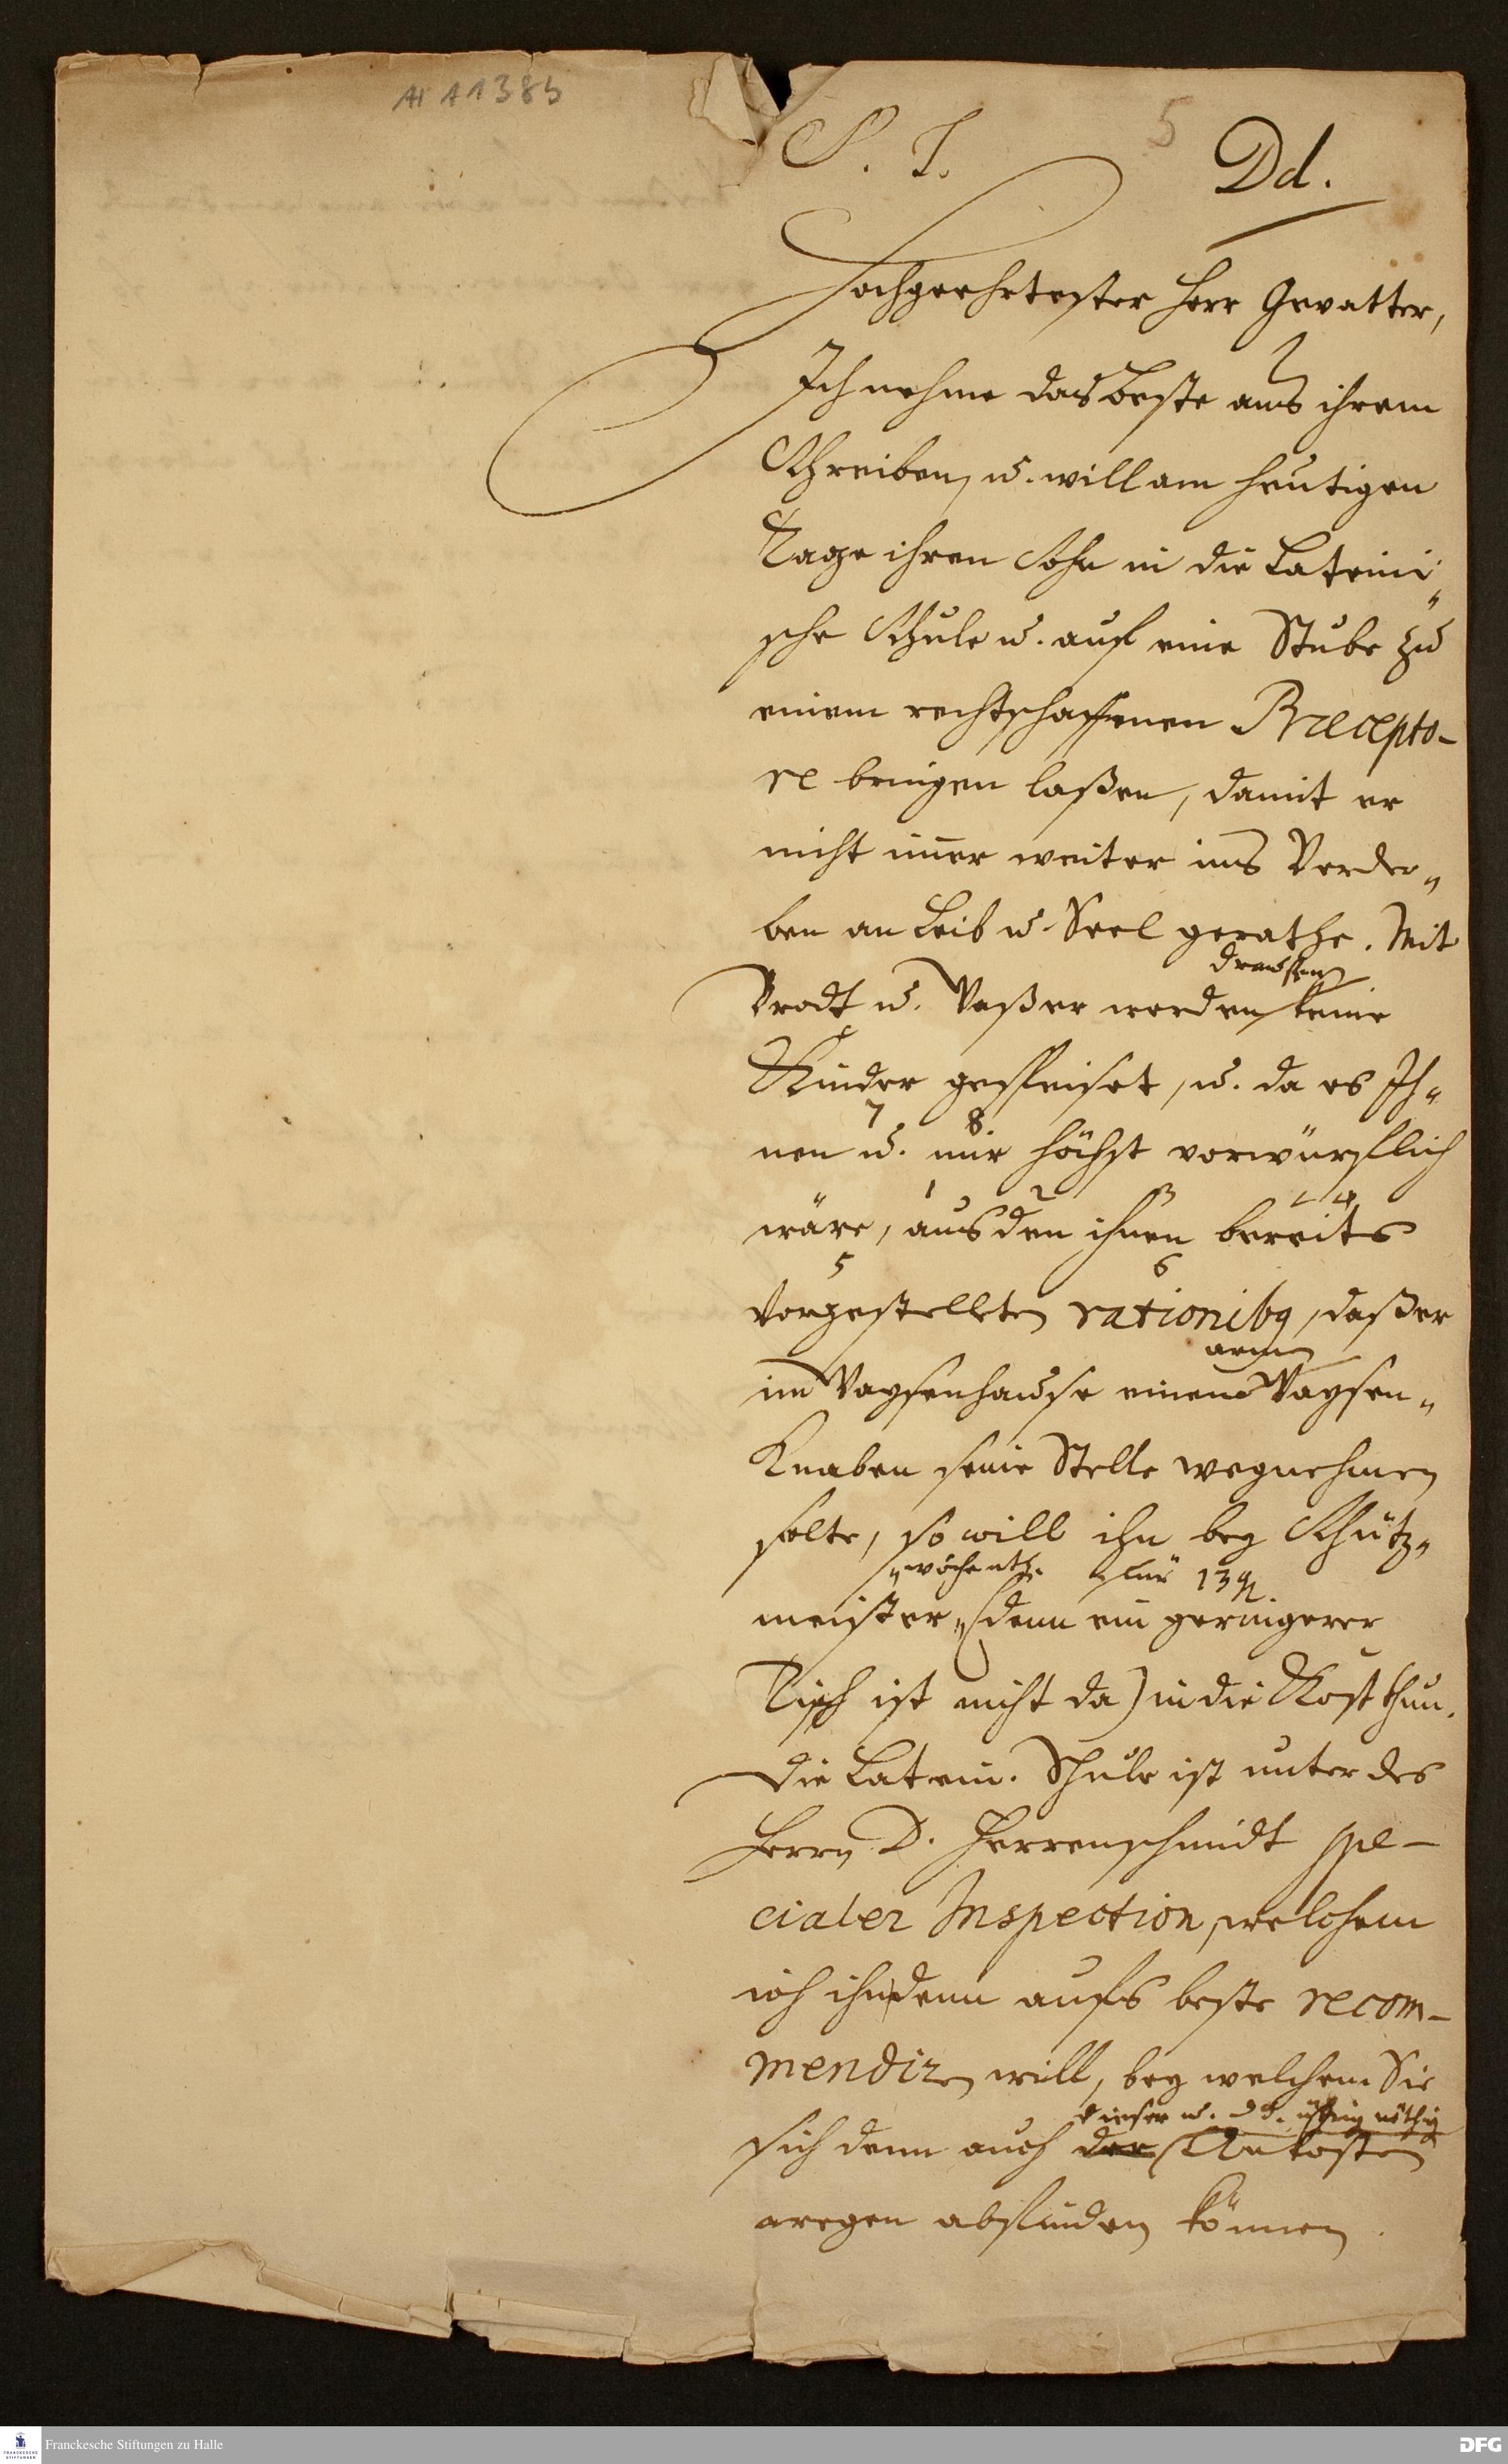 AI A 1385
5
S. T.
Dd.
Hochgeehrtester Herr Gevatter,
Ich nehme das beste aus ihrem
Schreiben, u. will am heutigen
Tage ihren Sohn in die Lateini„
sche Schule u. auf eine Stube zu
einem rechtschaffenen Præcepto-
re bringen laßen, damit er
nicht im̄er weiter ins Verder„
ben an Leib u. Seel gerathe. Mit
draussen
Brodt u. Waßer werden keine
Kinder gespeiset, u. da es Ih„
7 8.
nen u. mir höchst vorwürflich
1 2 3 4
wäre, aus den ihnen bereits
5 6
vorgestellten rationibg, daß er
armen
im Waysenhause einem Waysen„
Knaben seine Stelle wegnehmen
solte, so will ihn bey Schütz„
„wöchentl. für 13 gl.
meister„ (denn ein geringerer
Tisch ist nicht da) in die Kost thun.
Die Latein. Schule ist unter des
Herrn D. Herrenschmidt spe-
cialer Inspection, welchem
ich ihn denn aufs beste recom-
mendiren will, bey welchem Sie
dieser u. übrig nöthig
sich denn auch der Unkosten
wegen abfinden können.
Franckesche Stiftungen zu Halle
DFG